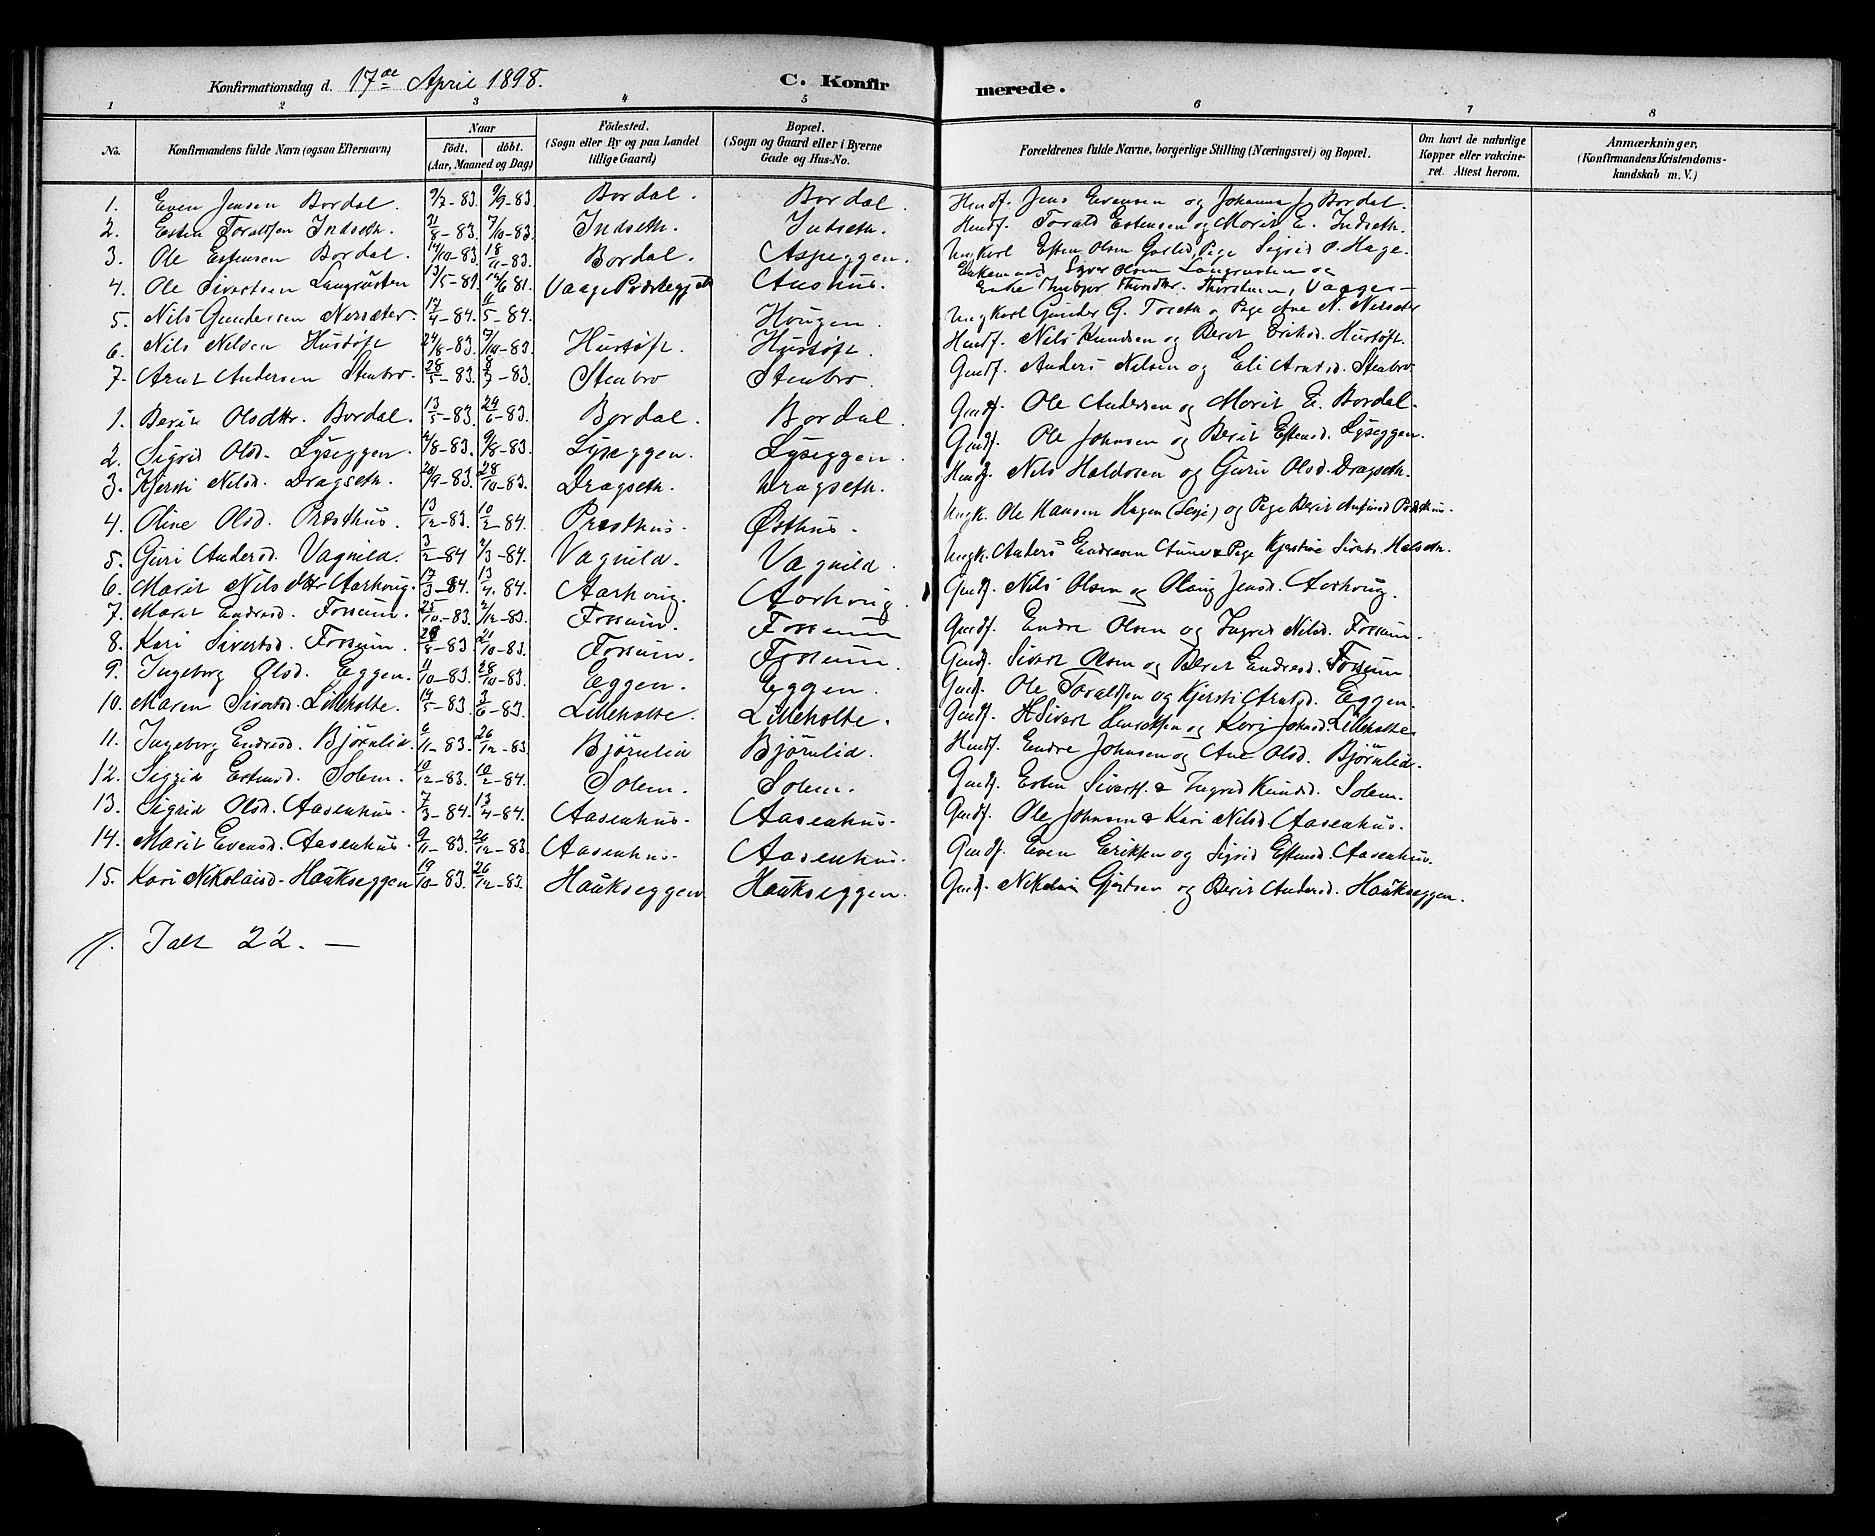 Konfirmationsdag d. 17de April 1898. C. Konfir merede.
1 2 3 4 5 6 7 8
No. Konfirmandens fulde Navn (ogsaa Efternavn) Naar födt. döbt. (Aar, Maaned og Dag) Födested. (Sogn eller By og paa Landet tillige Gaard) Bopæl. (Sogn og Gaard eller i Byerne Gade og Hus-No. Forældrenes fulde Navne, borgerlige Stilling (Næringsvei) og Bopæl. Om havt de naturlige Kopper eller vakcineret. Attest herom. Anmærkninger, (Konfirmandens Kristendomskundskab m. V.)
1. Even Jensen Bordal. 9/7-83. 9/9-83. Bordal. Bordal. Jens Evensen og Johanna J. Bordal.
2. Esten Toraldsen Indseth. 31/8-83. 7/10-83. Indseth. Indseth. Torald Estensen og Marit E. Indseth.
3. Ole Estensen Bordal. 14/10-83. 18/11-83. Bordal. Aspeggen. Ungkarl Esten Olsen Pige Sigrid O. Hage.
4. Ole Sivertsen Langrusten 13/5-81. 14/6 81. Vaage Aushus. Enkemand Olsen Langrusten og
Enke Thorsteen, Vaage -
5. Nils Gundersen Nersæter. 17/4-84. 11/5-84. Hougen. Ungkarl Gunder G. Toseth og Pige Ane N. Nersæter
6. Nils Nilsen Hustøft 24/8-83. 7/10-83. Hustøft. Hustøft. Nils Knudsen og Beret Eriksd. Hustøft.
7. Arnt Andersen Stenbro. 28/5-83. 8/7-83. Stenbro Stenbro. Gmdf. Anders Nilsen og Eli Arntsd. Stenbro
1. Berit Olsdtr. Bordal. 13/5-83. 24/6-83. Bordal. Bordal. Gmdf. Ole Andersen og Marit E. Bordal.
2. Sigrid Olsd. Lyseggen. 2/8-83. 9/8-83. Lyseggen. Lyseggen. Gmdf. Ole Johnsen og Berit Estensd. Lyseggen.
3. Kjersti Nilsd. Dragseth. 20/9-83. 28/10-83. Dragseth. Dragseth. Nils Haldosen og Guru Olsd. Dragseth.
4. Oline Olsd. Præsthus. 13/12-83. 10/2-84. Præsthus. Østhus. Ungk. Ole Hansen Hagen og Pige Berit
5. Guri Andersd. Vagnild. 3/2-84 2/3-84. Vagnild. Vagnild. Ungk. Anders Endresen Aune & Pige Kjerstine Sivertsd. Halseth.
6. Marit Nilsdtr Aarhoug. 17/3-84. 13/4.84. Aarhoug. Aarhoug. Gmdf. Nils Olsen og Olaug Jensd. Aarhoug.
7. Marit Endresd. Fossum. 25/10-83. 2/12-83. Fossum. Fossum Gmdf. Endre Olsen og Ingrid Nilsd. Fossum.
8. Kari Sivertsd. Fossum. 28/8-83 21/10-83. Fossum. Fossum. Gmdf. Sivert Olsen og Berit Endresd. Fossum.
9. Ingeborg Olsd. Eggen. 11/10-83. 28/10-83. Eggen. Eggen. Gmdf. Ole Toraldsen og Kjersti Arntsd. Eggen.
10. Maren Sivertsd. Lilleholte. 14/5-83. 3/6-83. Lilleholte. Lilleholte. Gmdf. Sivert Henriksen og Kari Johnsd. Lilleholte.
11. Ingeborg Endresd. Bjørnlid. 6/11-83. 26/12-83 Bjørnlid Bjørnlid. Endre Johnsen og Ane Olsd. Bjørnlid.
12. Sigrid Estensd. Solem. 10/12-83. 10/2-84. Solem. Solem. Gmdf. Esten Sivertf. & Ingrid Knudsd. Solem.
13. Sigrid Olsd. Aasenhus. 7/3-84. 13/4-84. Aasenhus. Aasenhus. Gmdf. Ole Johnsen & Kari Nilsd. Aasenhus.
14. Marit Evensd. Aasenhus. 9/11-83. 26/12-83. Aasenhus. Aasenhus. Gmdf. Even Eriksen og Sigrid Estensd. Aasenhus.
15. Kari Nikolaisd. Haukseggen 19/10-83. 26/12-83. Haukseggen. Haukseggen. Gmdf. Nikolai Gjertsen og Berit Andersd. Haukseggen.
Ialt 22. —